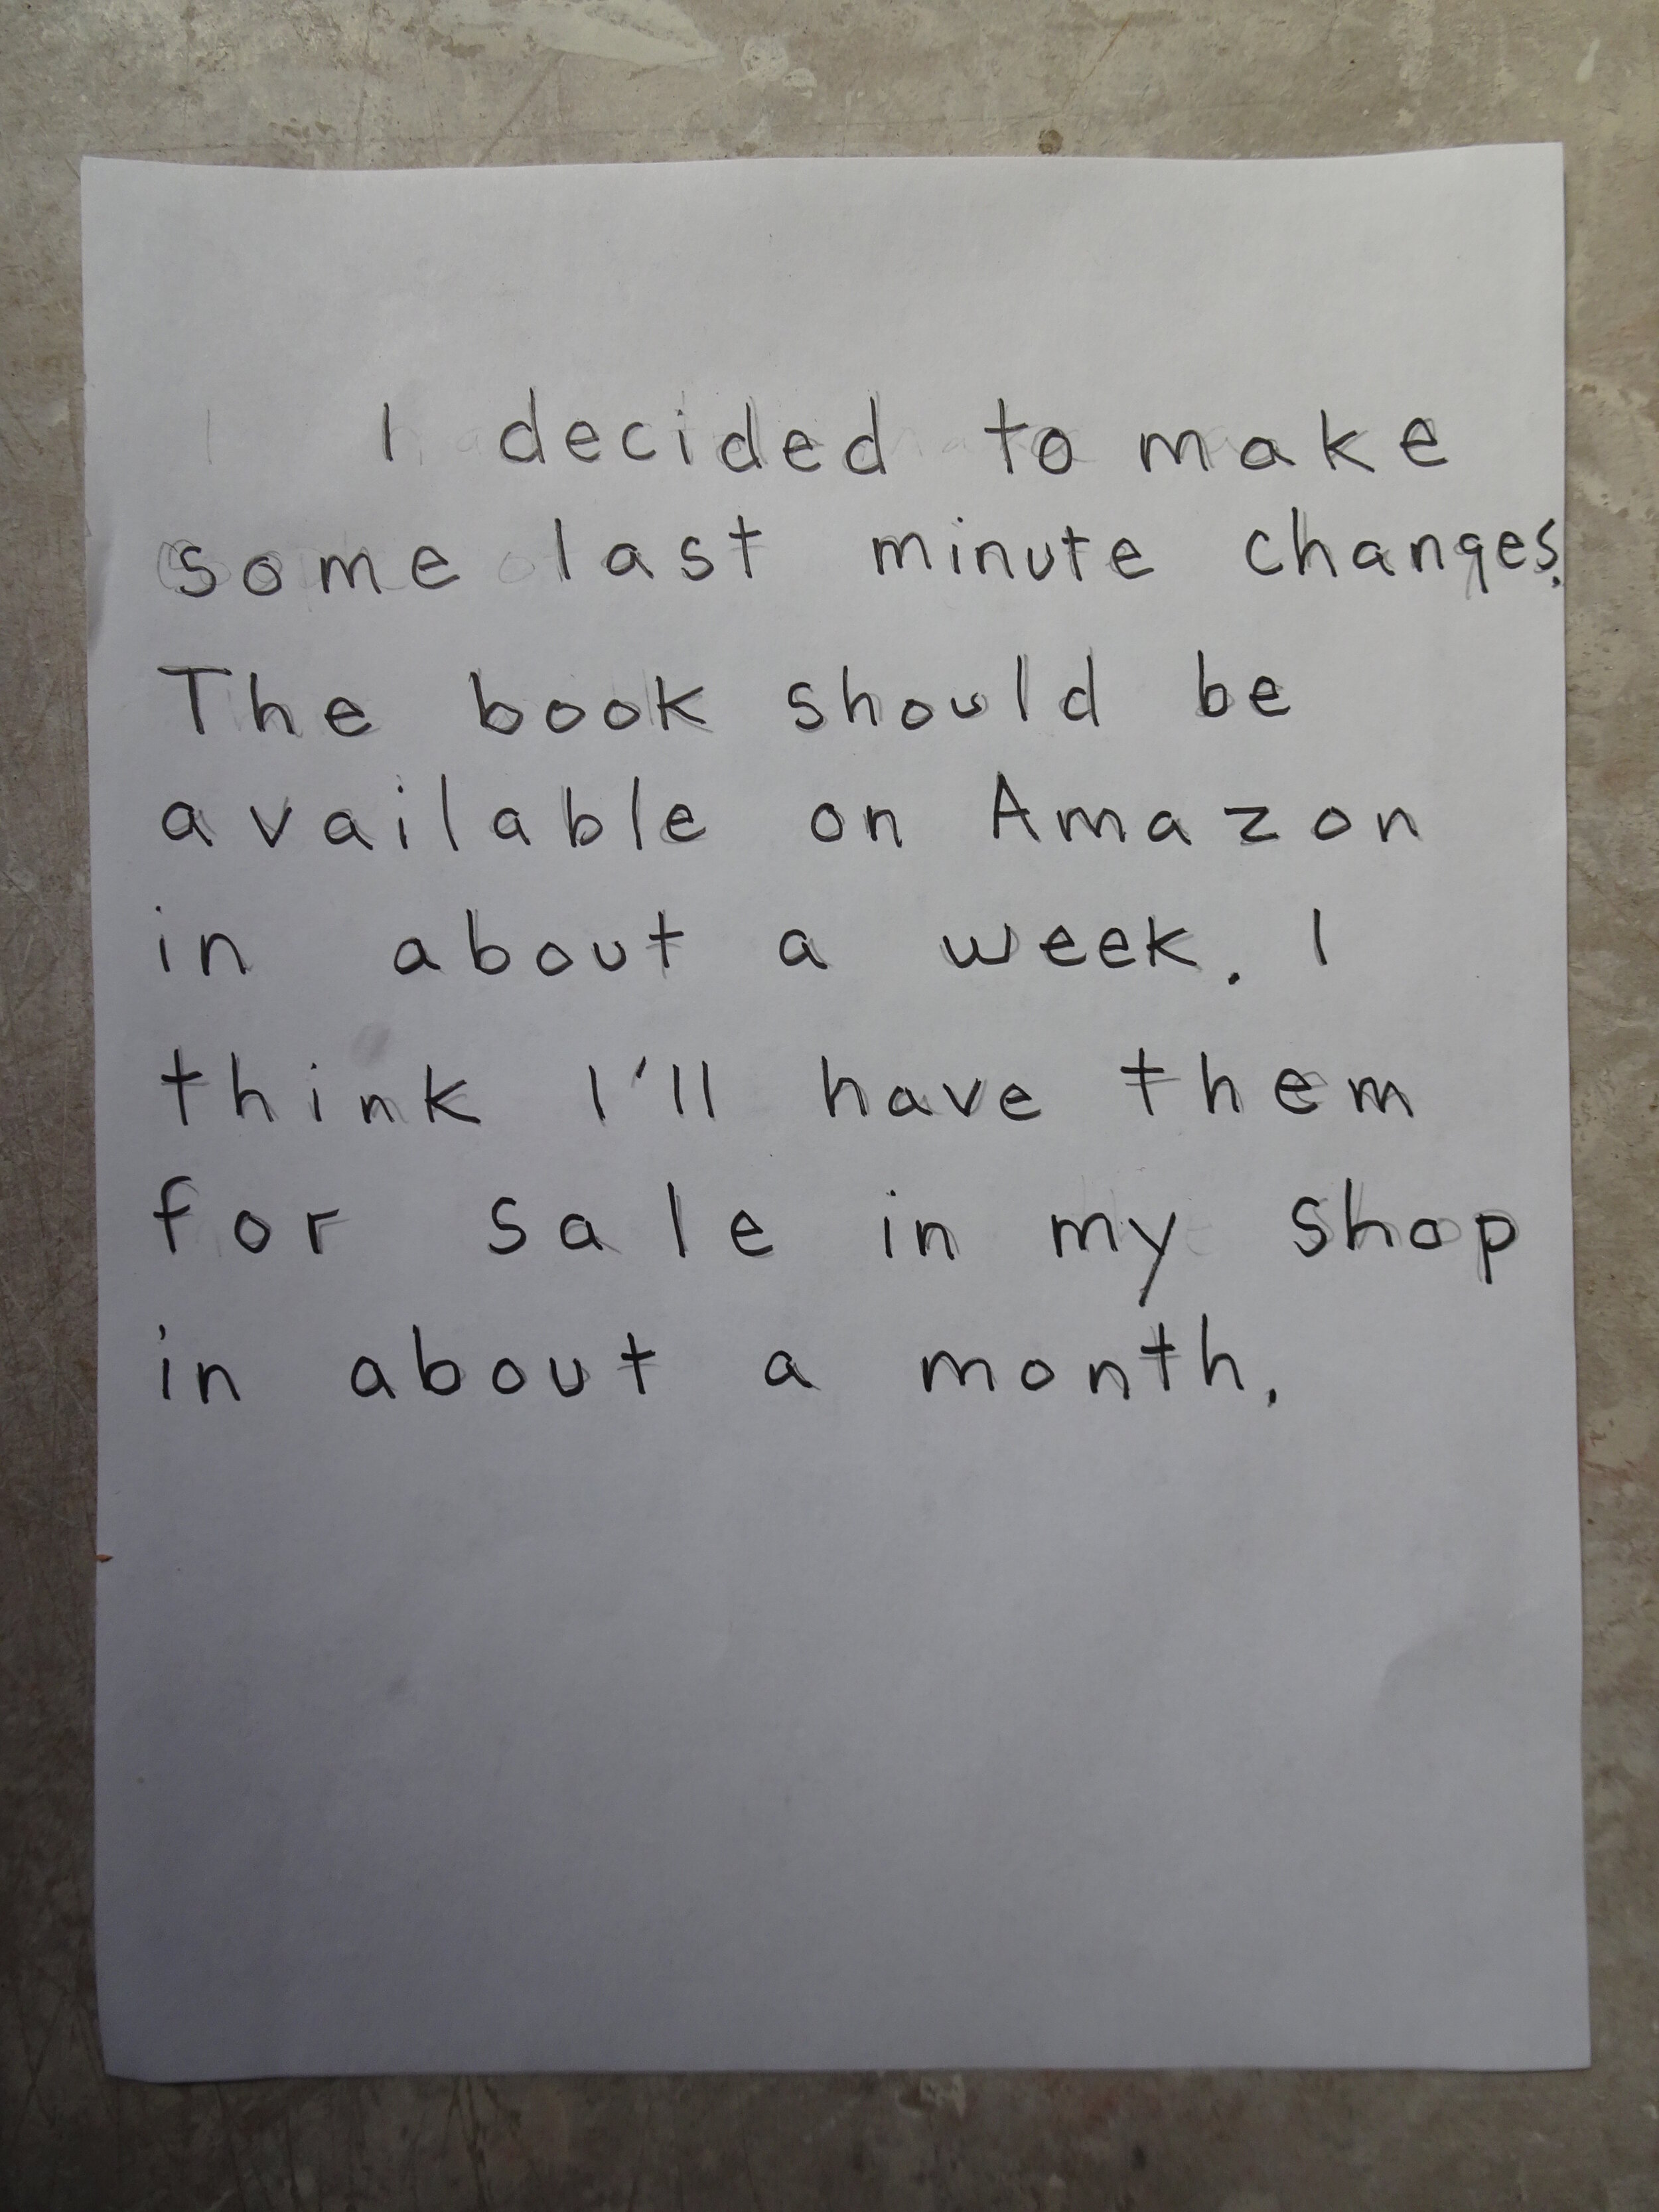 I decided to make
some last minute changes.
The book should be
available on Amazon
in about a week. I
think I'll have them
for sale in my shop
in about a month.